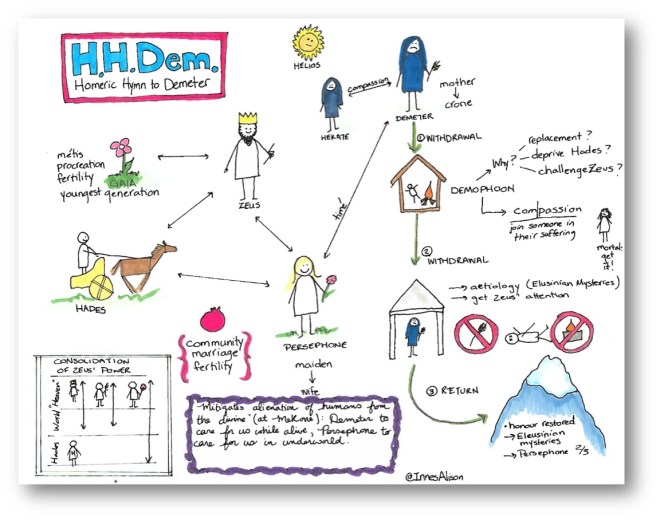 H.H.Dem.
Homeric Hymn to Demeter
HELIOS
HEKATE
compassion
DEMETER
mother
crone
① WITHDRAWAL
métis
procreation
fertility
youngest generation
GAIA
ZEUS
time
DEMOPHOON
Why?
replacement?
deprive Hades?
challenge Zeus?
compassion
join someone in
their suffering
mortals
get
it!
② WITHDRAWAL
HADES
PERSEPHONE
maiden
wife
community
marriage
fertility
aetiology (Elusinian Mysteries)
get Zeus' attention
CONSOLIDATION
OF ZEUS' POWER
"Heaven"
World
Hades
Mitigates alienation of humans from
the divine (at Mekone): Demeter to
care for us while alive, Persephone to
care for us in underworld.
③ RETURN
honour restored
Eleusinian
mysteries
Persephone 2/3
@InnesAlison